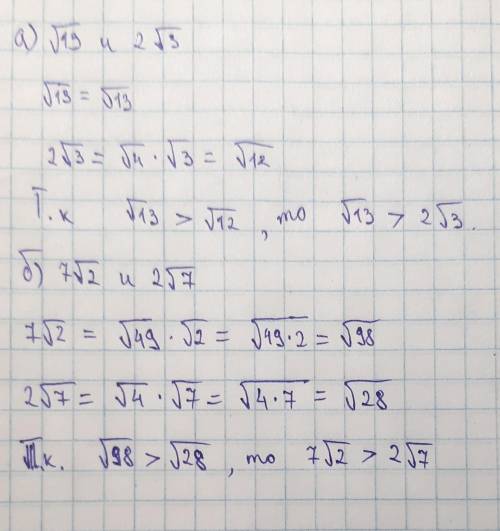 а) √13 и 2√3
√13 = √13
2√3 = √4 · √3 = √12
Т.к √13 > √12, то √13 > 2√3.
б) 7√2 и 2√7
7√2 = √49 · √2 = √49·2 = √98
2√7 = √4 · √7 = √4·7 = √28
Т.к. √98 > √28, то 7√2 > 2√7